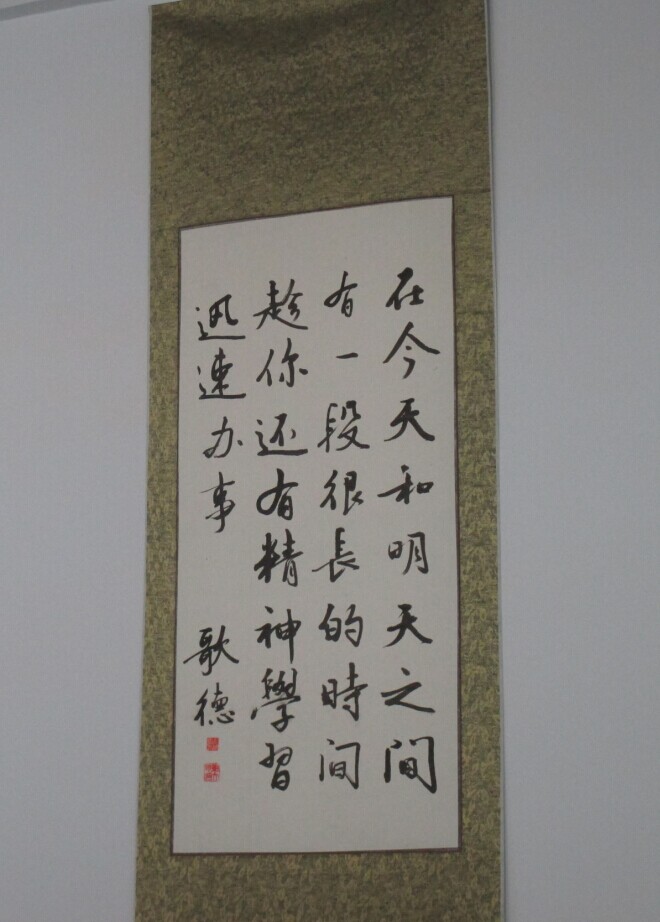 在今天和明天之间
有一段很長的時间
趁你还有精神學習
迅速办事
歌德